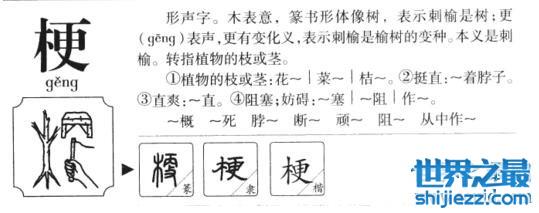 梗
gěng
形声字。木表意，篆书形体像树，表示刺榆是树；更
(gēng)表声，更有变化义，表示刺榆是榆树的变种。本义是刺
榆。转指植物的枝或茎。
①植物的枝或茎：花～｜菜～｜桔～。②挺直：～着脖子。
③直爽：～直。④阻塞；妨碍：～塞｜～阻｜作～。
～概 ～死 脖～ 断～ 顽～ 阻～ 从中作～
梗 篆
梗 隶
梗 楷
世界之最
shijiezzi.com